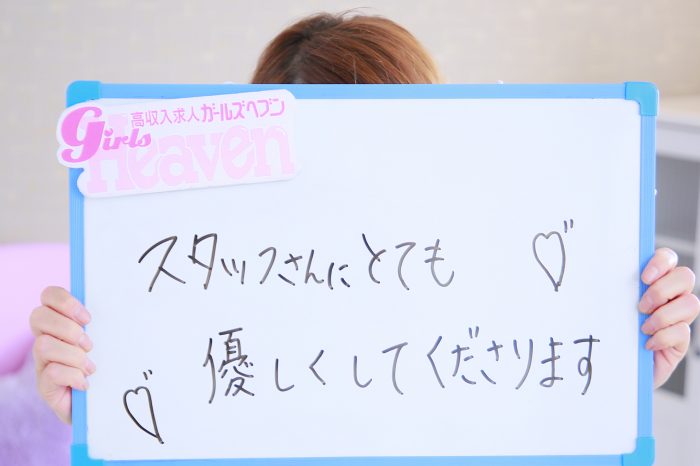 高収入求人ガールズヘブン
Girls
Heaven
スタッフさんにとても
優しくしてくださります